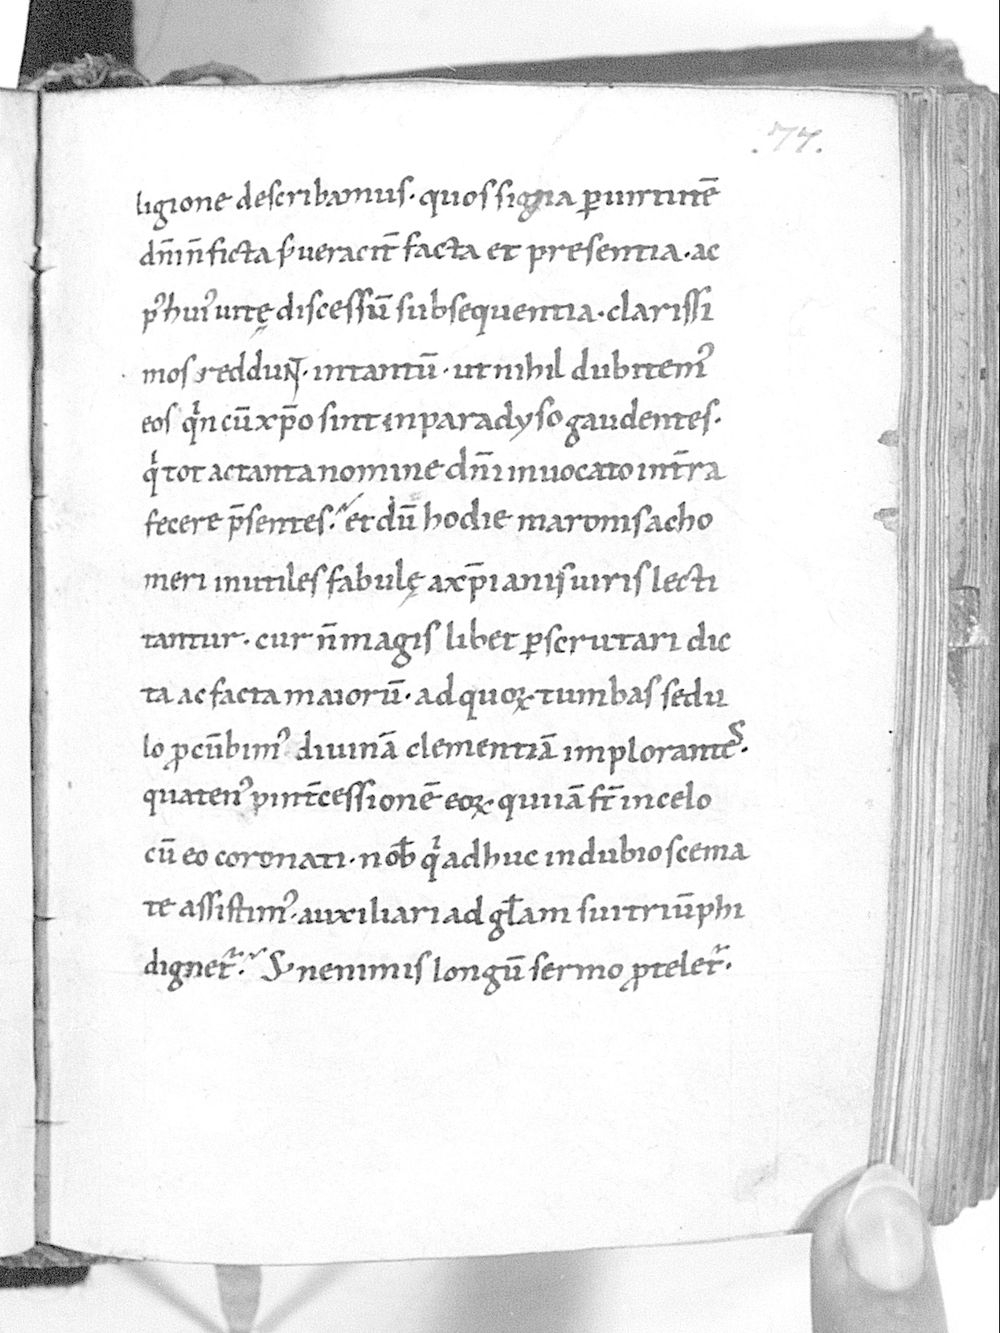 .77.
ligione describamus· quos signa ꝑ uirtutē
dn̄i n̄ ficta s; ueracit̄ facta et presentia· ac
p᾽ huı᾽ uitę discessū subsequentia· clarissi
mos reddunt· intantū· ut nihil dubitem᾽
eos qͥn cū xp̄o sint in paradyso gaudentes·
qͥ tot ac tanta nomine dn̄i inuocato in t̄ra
fecere p̄sentes· et dū hodie maronis ac ho
meri inutiles fabulę a xp̄ianis uiris lecti
tantur· cur n̄ magis libet ꝑscrutari dic
ta ac facta maiorū· ad quoꝝ tumbas sedu
lo ꝓcūbim᾽ diuinā clementiā implorantes·
quaten᾽ ꝑ int̄cessionē eoꝝ qui iā s̄t in celo
cū eo coronati· nob̄ qͥ adhuc in dubio scema
te assistim᾽· auxiliari ad gl̄am sui triūphi
dignet᷑· S; ne nimis longū sermo ꝓtelet᷑·